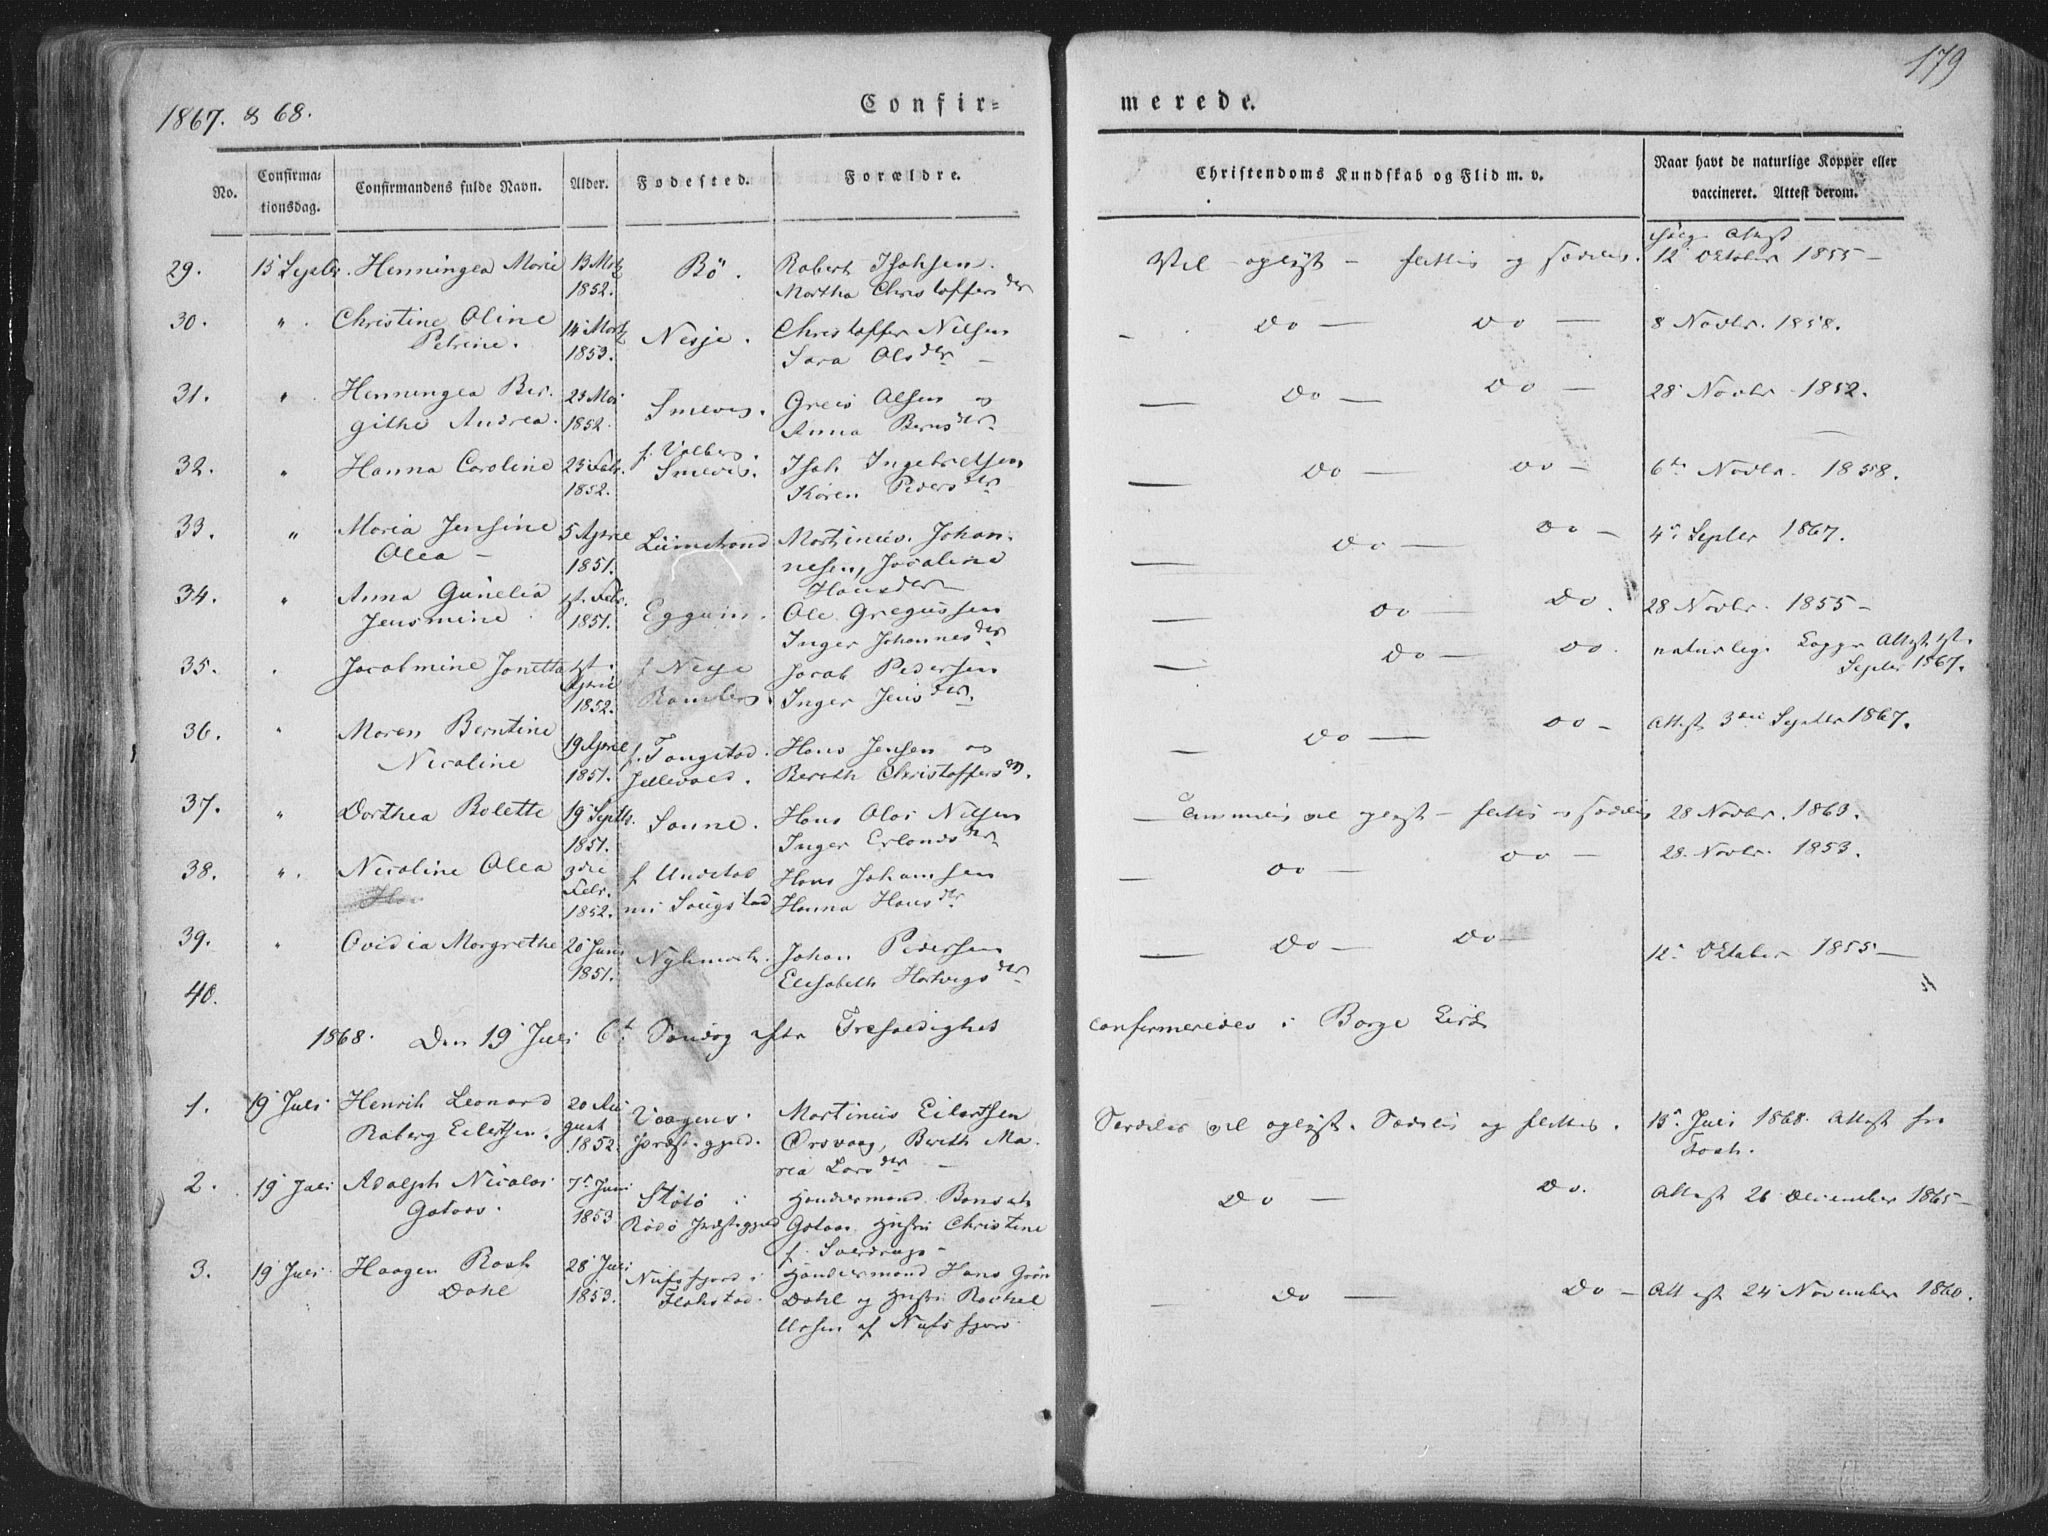 179
1867. & 68.
Confir=
merede.
No.
Confirma-
tionsdag.
Confirmandens fulde Navn.
Alder.
Fødested.
Forældre.
Christendoms Kundskab og Flid m. v.
Naar havt de naturlige Kopper eller
vaccineret. Attest derom.
29. 15 Septbr. Henningea Marie 13 Mrtz 1852. Bö. Robert Isaksen. Martha Christoffersder
Vel oplyst - flittig og sædelig. 12 Oktober 1855 -
30. " Christine Oline Petrine. 14 Mrtz 1853. Nesje. Christoffer Nilsen Sara Olsder -
Do - Do - 8 Novbr. 1858.
31. " Henningea Bergithe Andrea. 23 Mai 1852. Greis Olsen og Anna Bernsder
Do - Do - 28 Novbr 1852.
32. " Hanna Caroline 23 Febr. 1852. Isak Ingebretsen Karen Pedersder
Do - Do - 6te Novbr. 1858.
33. " Maria Jensine Olea - 5 April 1851. Martinus Johannesen, Jocaline Hansder
Do - Do - 4 Septbr 1867.
34. " Anna Gunelia Jensmine 1st. Febr. 1851. Eggum. Ole Gregussen Inger Johannesder
Do - Do. 28 Novbr. 1855 -
35. " Jacobmine Jonetta 1st. April 1852. f Nesje Jacob Pedersen Inger Jensder.
Do - Do. naturlig. Kopper Attest 1st. Septbr 1867.
36. " Maren Berntine Nicoline 19 April 1851. f. Tangstad. Hans Jensen og Berith Christoffersd.
Do - Do - Attest 3die Septbr 1867.
37. " Dorthea Bolette 19 Septb. 1851. Hans Olai Nilsen Inger Erlandsder
vel oplyst - flittig og sædelig 28 Novbr. 1863.
38. " Nicoline Olea 3die Febr. 1852. f Undstad Hans Johansen Hanna Hansder
Do Do - 28. Novbr. 1853.
39. " Ovidia Margrethe 20 Juni 1851. Johan Pedersen Elisabeth Hartvigsder
Do - Do - 12 Oktober 1855 -
40.
1868. Den 19 Juli 6t. Søndag efter Trefoldighet
confirmeredes i Borge Kirke
1. 19 Juli Henrik Leonard Raberg Eilertsen. 20 August 1852. Vaagens Præstegjeld. Martinus Eilertsen Ørsvaag, Berith Marea Larsder -
Særdeles vel oplyst. Sædelig og flittig. 13 Juli 1868. Attest fra
2. 19 Juli Adolph Nicolai Gotaas. 7 Juni 1853 Stötö i Rödö Præstegjeld Handelsmand Gotaas Hustru Christine f. Sverdrup -
Do - Do. Attest 26 December 1865 -
3. 19 Juli Haagen Rask Dahl 28 Juli 1853. Nufsfjord i Flakstad. Handelsmand Hans Grön Dahl og Hustru Rachel af Nufsfjord
Do - Do - Attest 24 November 1860.